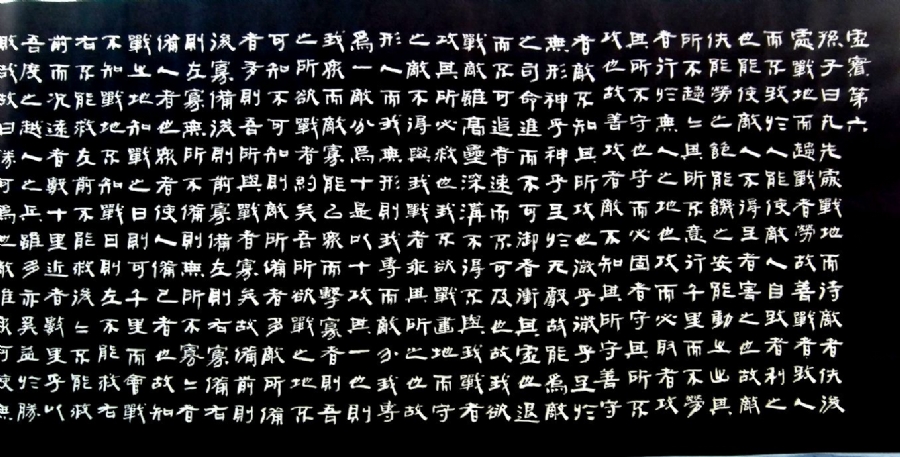 虛實第六
孫子曰凡先處戰地而待敵者佚後
處戰地而趨戰者勞故善戰者致人
而不致於人能使敵人自致者利之
也能使敵人不得至者害之也故敵
佚能勞之飽能饑之安能動之出其
所不趨〻其所不意行千里而不勞
者行於無人之地也攻而必取者攻
其所不守也守而必固者守其所不
攻也故善攻者敵不知其所守善守
者敵不知其所攻也微乎微乎至於
無形神乎神乎至於无聲故能為敵
之司命進而不可御者衝其虛也退
而不可追者速而不可及也故我欲
戰敵雖高壘深溝不得不與我戰者
攻其所必救也我不欲戰畫地而守
之敵不得與我戰者乖其所之也故
形人而我無形則我專而敵分我專
為一敵分為十是以十攻其一也則
我眾而敵寡能以眾而擊寡者則吾
之所欲戰者約矣吾所欲戰之地不
可知不可知則敵所備者多敵所備
者多則吾所與戰者寡矣故備前則
後寡備後則前寡備左則右寡備右
則左寡無所不備則無所不寡〻者
備人者也眾者使人備己者也故知
戰之地知戰之日則可千里而會戰
不知戰地不知戰日則左不能救右
右不能救左前不能救後〻不能救
前而況遠者數十里近者數里乎以
吾度之越人之兵雖多亦奚益於勝
敗哉故曰勝可為也敵雖眾可使無